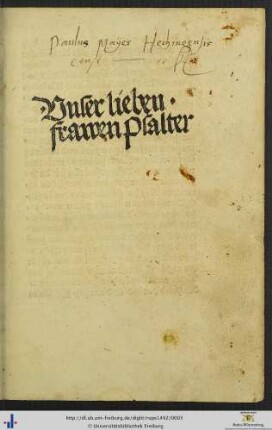 Paulus Mayer Hechingensis
Vnser lieben
frawen Psalter
http://dl.ub.uni-freiburg.de/diglit/maye1492/0003
© Universitätsbibliothek Freiburg
Baden-Württemberg